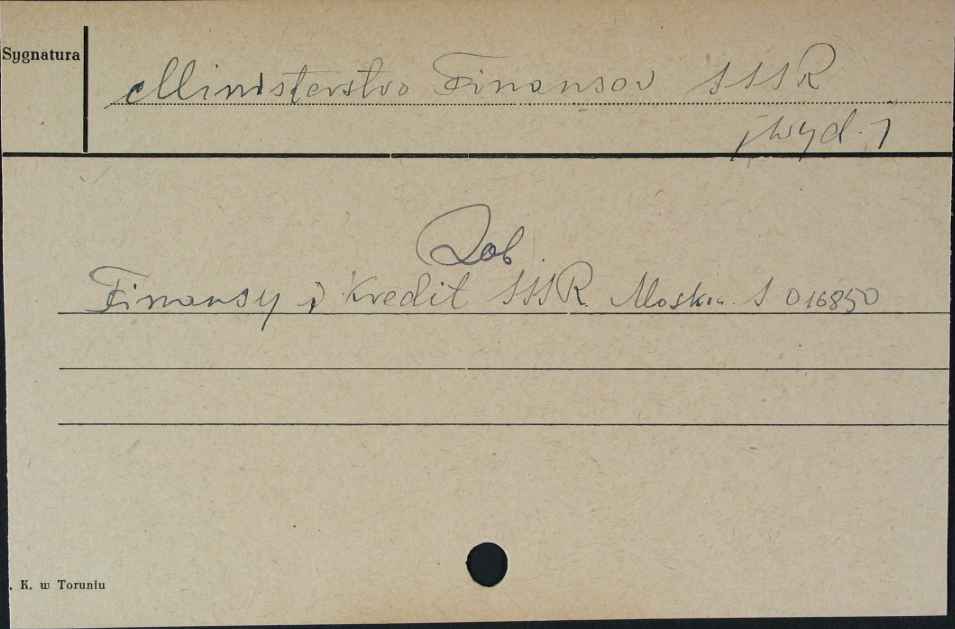 Sygnatura
Ministerstvo Finansov SSSR
[wyd.]
Zob
Finansy i Kredit SSSR. Moskva S 016850
. K. w Toruniu